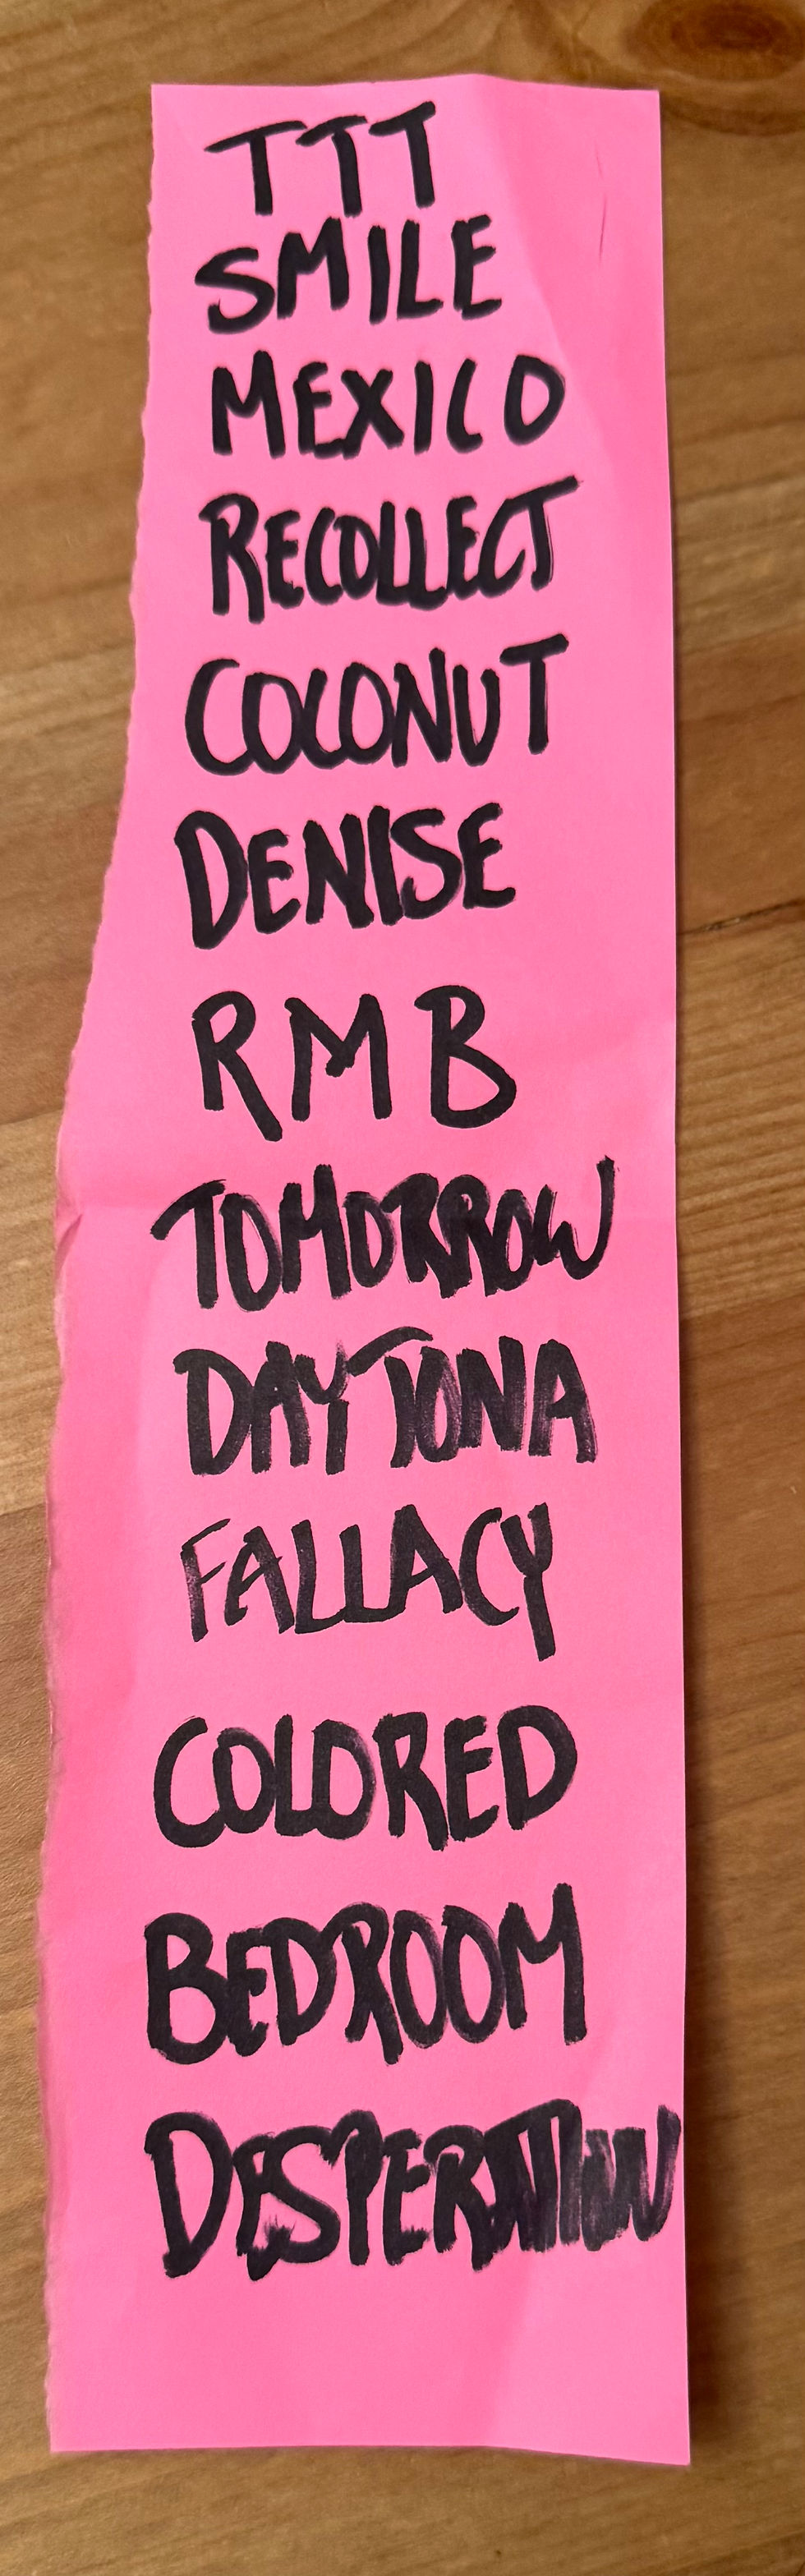 TTT
SMILE
MEXICO
RECOLLECT
COCONUT
DENISE
RMB
TOMORROW
DAYTONA
FALLACY
COLORED
BEDROOM
DESPERATION